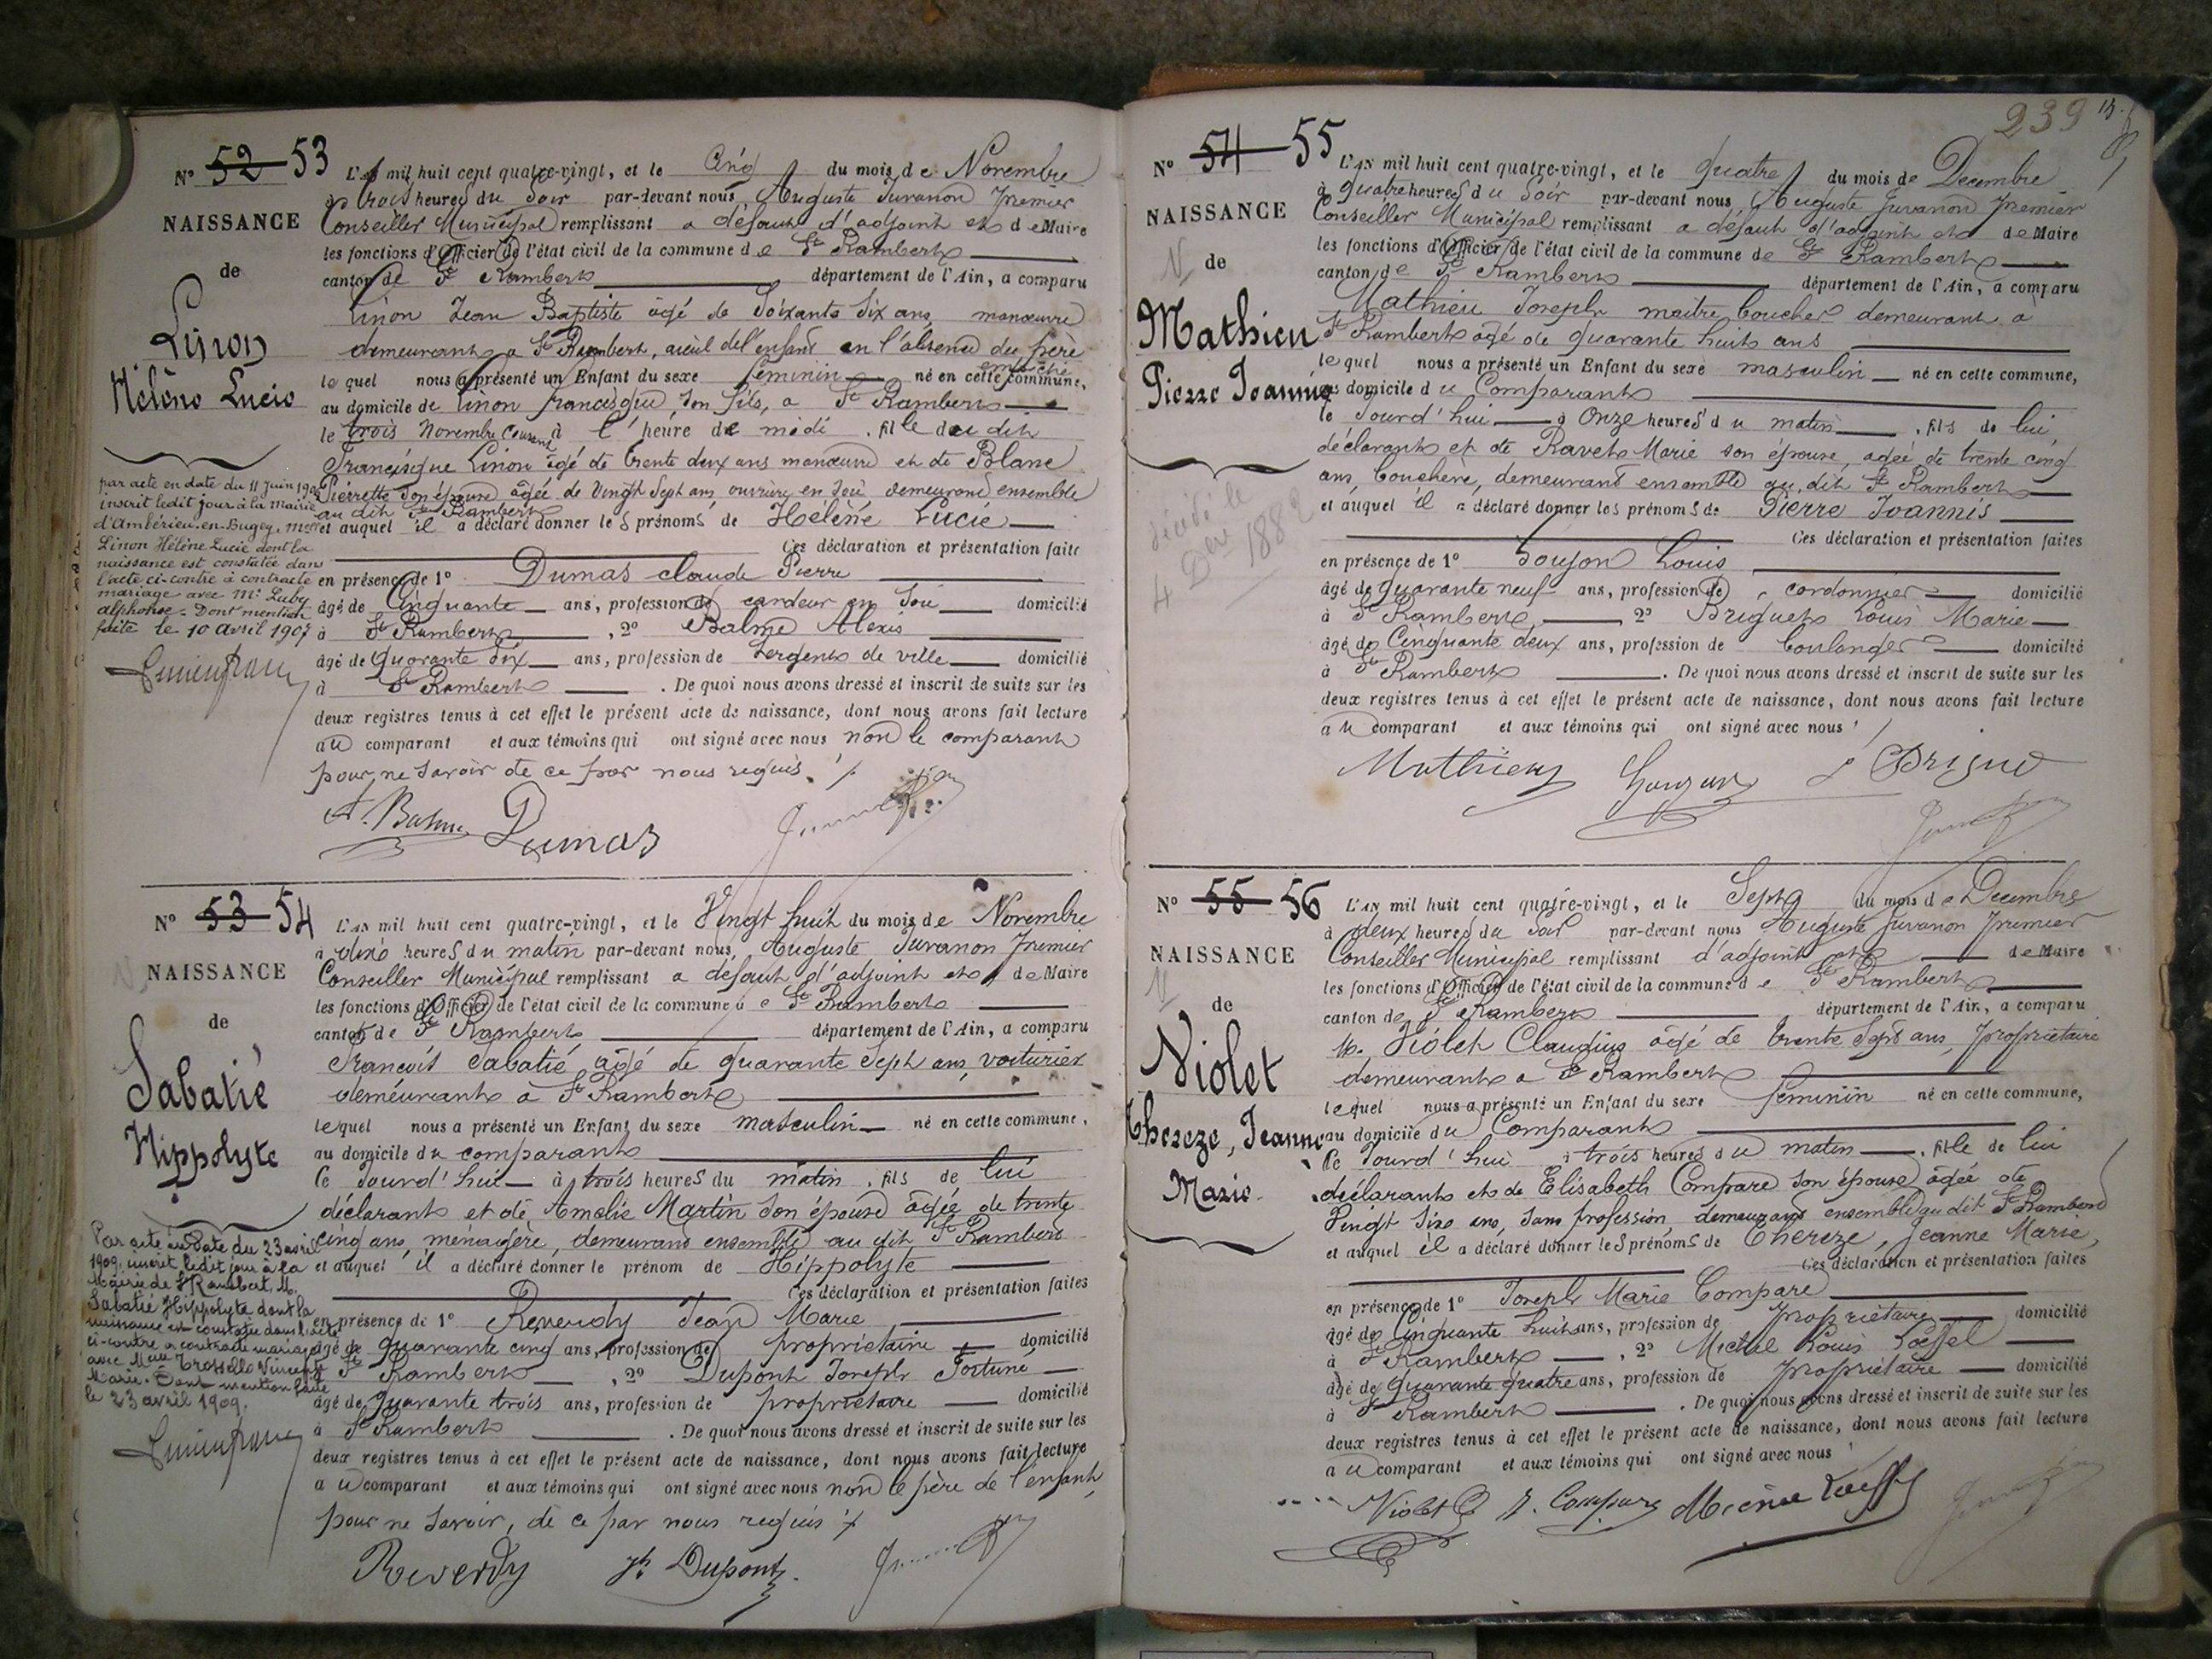 N° 52 53
NAISSANCE
de
Linon
Hélène Lucie
par acte en date du 11 juin 190
inscrit ledit jour à la mairie
d'Ambérieu-en-Bugey,
Linon Hélène Lucie dont la
naissance est constatée dans
l'acte ci-contre à contracté
mariage avec Mr Luby
alphonse. Dont mention
faite le 10 avril 1907
L'AN mil huit cent quatre-vingt, et le Cinq du mois de Novembre
à trois heures du Soir par-devant nous, Auguste Juvanon Premier
Conseiller Municipal remplissant a défaut d'adjoint et de Maire
les fonctions d'Officier de l'état civil de la commune de St Rambert
canton de St Rambert département de l'Ain, a comparu
Linon Jean Baptiste âgé de Soixante Six ans, manœuvre
demeurant a St Rambert, aieul de l'enfant en l'absence du père
empêché
lequel nous a présenté un Enfant du sexe féminin né en cette commune,
au domicile de Linon francisque, son fils, a St Rambert
le trois Novembre Courant à l'heure de midi . fille du dit
Francisque Linon âgé de trente deux ans manœuvre et de Blanc
Pierrette son épouse âgée de Vingt Sept ans ouvrière en soie demeurant ensemble
au dit St Rambert
et auquel il a déclaré donner les prénoms de Hélène Lucie
Ces déclaration et présentation faites
en présence de 1° Dumas claude Pierre
âgé de Cinquante ans, profession de cardeur en Soie domicilié
à St Rambert , 2° Balme Alexis
âgé de Quarante Six ans, profession de Sergent de ville domicilié
à St Rambert . De quoi nous avons dressé et inscrit de suite sur les
deux registres tenus à cet effet le présent acte de naissance, dont nous avons fait lecture
au comparant et aux témoins qui ont signé avec nous non le comparant
pour ne savoir de ce par nous requis ./.
A. Balme Dumas
N° 53 54
NAISSANCE
de
Sabatié
Hippolyte
Par acte en date du 23 avril
1909, inscrit ledit jour à la
Mairie de St Rambert, M.
Sabatié Hippolyte dont la
naissance est constatée dans l'acte
ci-contre a contracté mariage
avec Melle Trosselle Vincente
Marie. Dont mention faite
le 23 avril 1909.
L'AN mil huit cent quatre-vingt, et le Vingt huit du mois de Novembre
à dix heures du matin par-devant nous, Auguste Juvanon Premier
Conseiller Municipal remplissant a défaut d'adjoint et de Maire
les fonctions d'Officier de l'état civil de la commune de St Rambert
canton de St Rambert département de l'Ain, a comparu
François Sabatié âgé de quarante Sept ans, voiturier
demeurant à St Rambert
lequel nous a présenté un Enfant du sexe masculin né en cette commune,
au domicile du comparant
Ce Jourd'hui à trois heures du matin . fils de lui
déclarant et de Amelie Martin son épouse âgée de trente
cinq ans, ménagère, demeurant ensemble au dit St Rambert
et auquel il a déclaré donner le prénom de Hippolyte
Ces déclaration et présentation faites
en présence de 1° Reverdy Jean Marie
âgé de quarante cinq ans, profession de propriétaire domicilié
St Rambert , 2° Dupont Joseph Fortuné
âgé de quarante trois ans, profession de propriétaire domicilié
à St Rambert . De quoi nous avons dressé et inscrit de suite sur les
deux registres tenus à cet effet le présent acte de naissance, dont nous avons fait lecture
au comparant et aux témoins qui ont signé avec nous non le père de l'enfant,
pour ne savoir, de ce par nous requis ./.
Reverdy Jh Dupont
239
N° 54 55
NAISSANCE
V
de
Mathieu
Pierre Joannis
décédé le
4 Dbre 1882
L'AN mil huit cent quatre-vingt, et le quatre du mois de Decembre
à quatre heures du Soir par-devant nous, Auguste Juvanon Premier
Conseiller Municipal remplissant a défaut d'adjoint et de Maire
les fonctions d'Officier de l'état civil de la commune de St Rambert
canton de St Rambert département de l'Ain, a comparu
Mathieu Joseph maitre boucher demeurant a
St Rambert âgé de quarante huit ans
lequel nous a présenté un Enfant du sexe masculin né en cette commune,
au domicile du Comparant
le Jourd'hui à Onze heures du matin . fils de lui
déclarant et de Ravet Marie son épouse, agée de trente cinq
ans, bouchère, demeurant ensemble au dit St Rambert
et auquel il a déclaré donner les prénoms de Pierre Joannis
Ces déclaration et présentation faites
en présence de 1° Goujon Louis
âgé de quarante neuf ans, profession de cordonnier domicilié
à St Rambert, 2° Briguet Louis Marie
âgé de Cinquante deux ans, profession de boulanger domicilié
à St Rambert . De quoi nous avons dressé et inscrit de suite sur les
deux registres tenus à cet effet le présent acte de naissance, dont nous avons fait lecture
au comparant et aux témoins qui ont signé avec nous ./
Mathieu
N° 55 56
NAISSANCE
V
de
Violet
Thereze, Jeanne
Marie
L'AN mil huit cent quatre-vingt, et le Sept du mois de Decembre
à deux heures du soir par-devant nous Auguste Juvanon Premier
Conseiller Municipal remplissant d'adjoint et de Maire
les fonctions d'Officier de l'état civil de la commune de St Rambert
canton de St Rambert département de l'Ain, a comparu
M. Violet Claudius âgé de trente Sept ans, propriétaire
demeurant a St Rambert
lequel nous a présenté un Enfant du sexe féminin né en cette commune,
au domicile du Comparant
Ce Jourd'hui à trois heures du matin . fille de lui
déclarant et de Elisabeth Compare son épouse âgée de
Vingt Six ans, sans profession, demeurant ensemble au dit St Rambert
et auquel il a déclaré donner les prénoms de Thereze, Jeanne Marie,
Ces déclaration et présentation faites
en présence de 1° Joseph Marie Compare
âgé de Cinquante huit ans, profession de propriétaire domicilié
à St Rambert , 2° Michel Louis Loeffel
âgé de quarante quatre ans, profession de propriétaire domicilié
à St Rambert . De quoi nous avons dressé et inscrit de suite sur les
deux registres tenus à cet effet le présent acte de naissance, dont nous avons fait lecture
au comparant et aux témoins qui ont signé avec nous
Violet C J. Compare